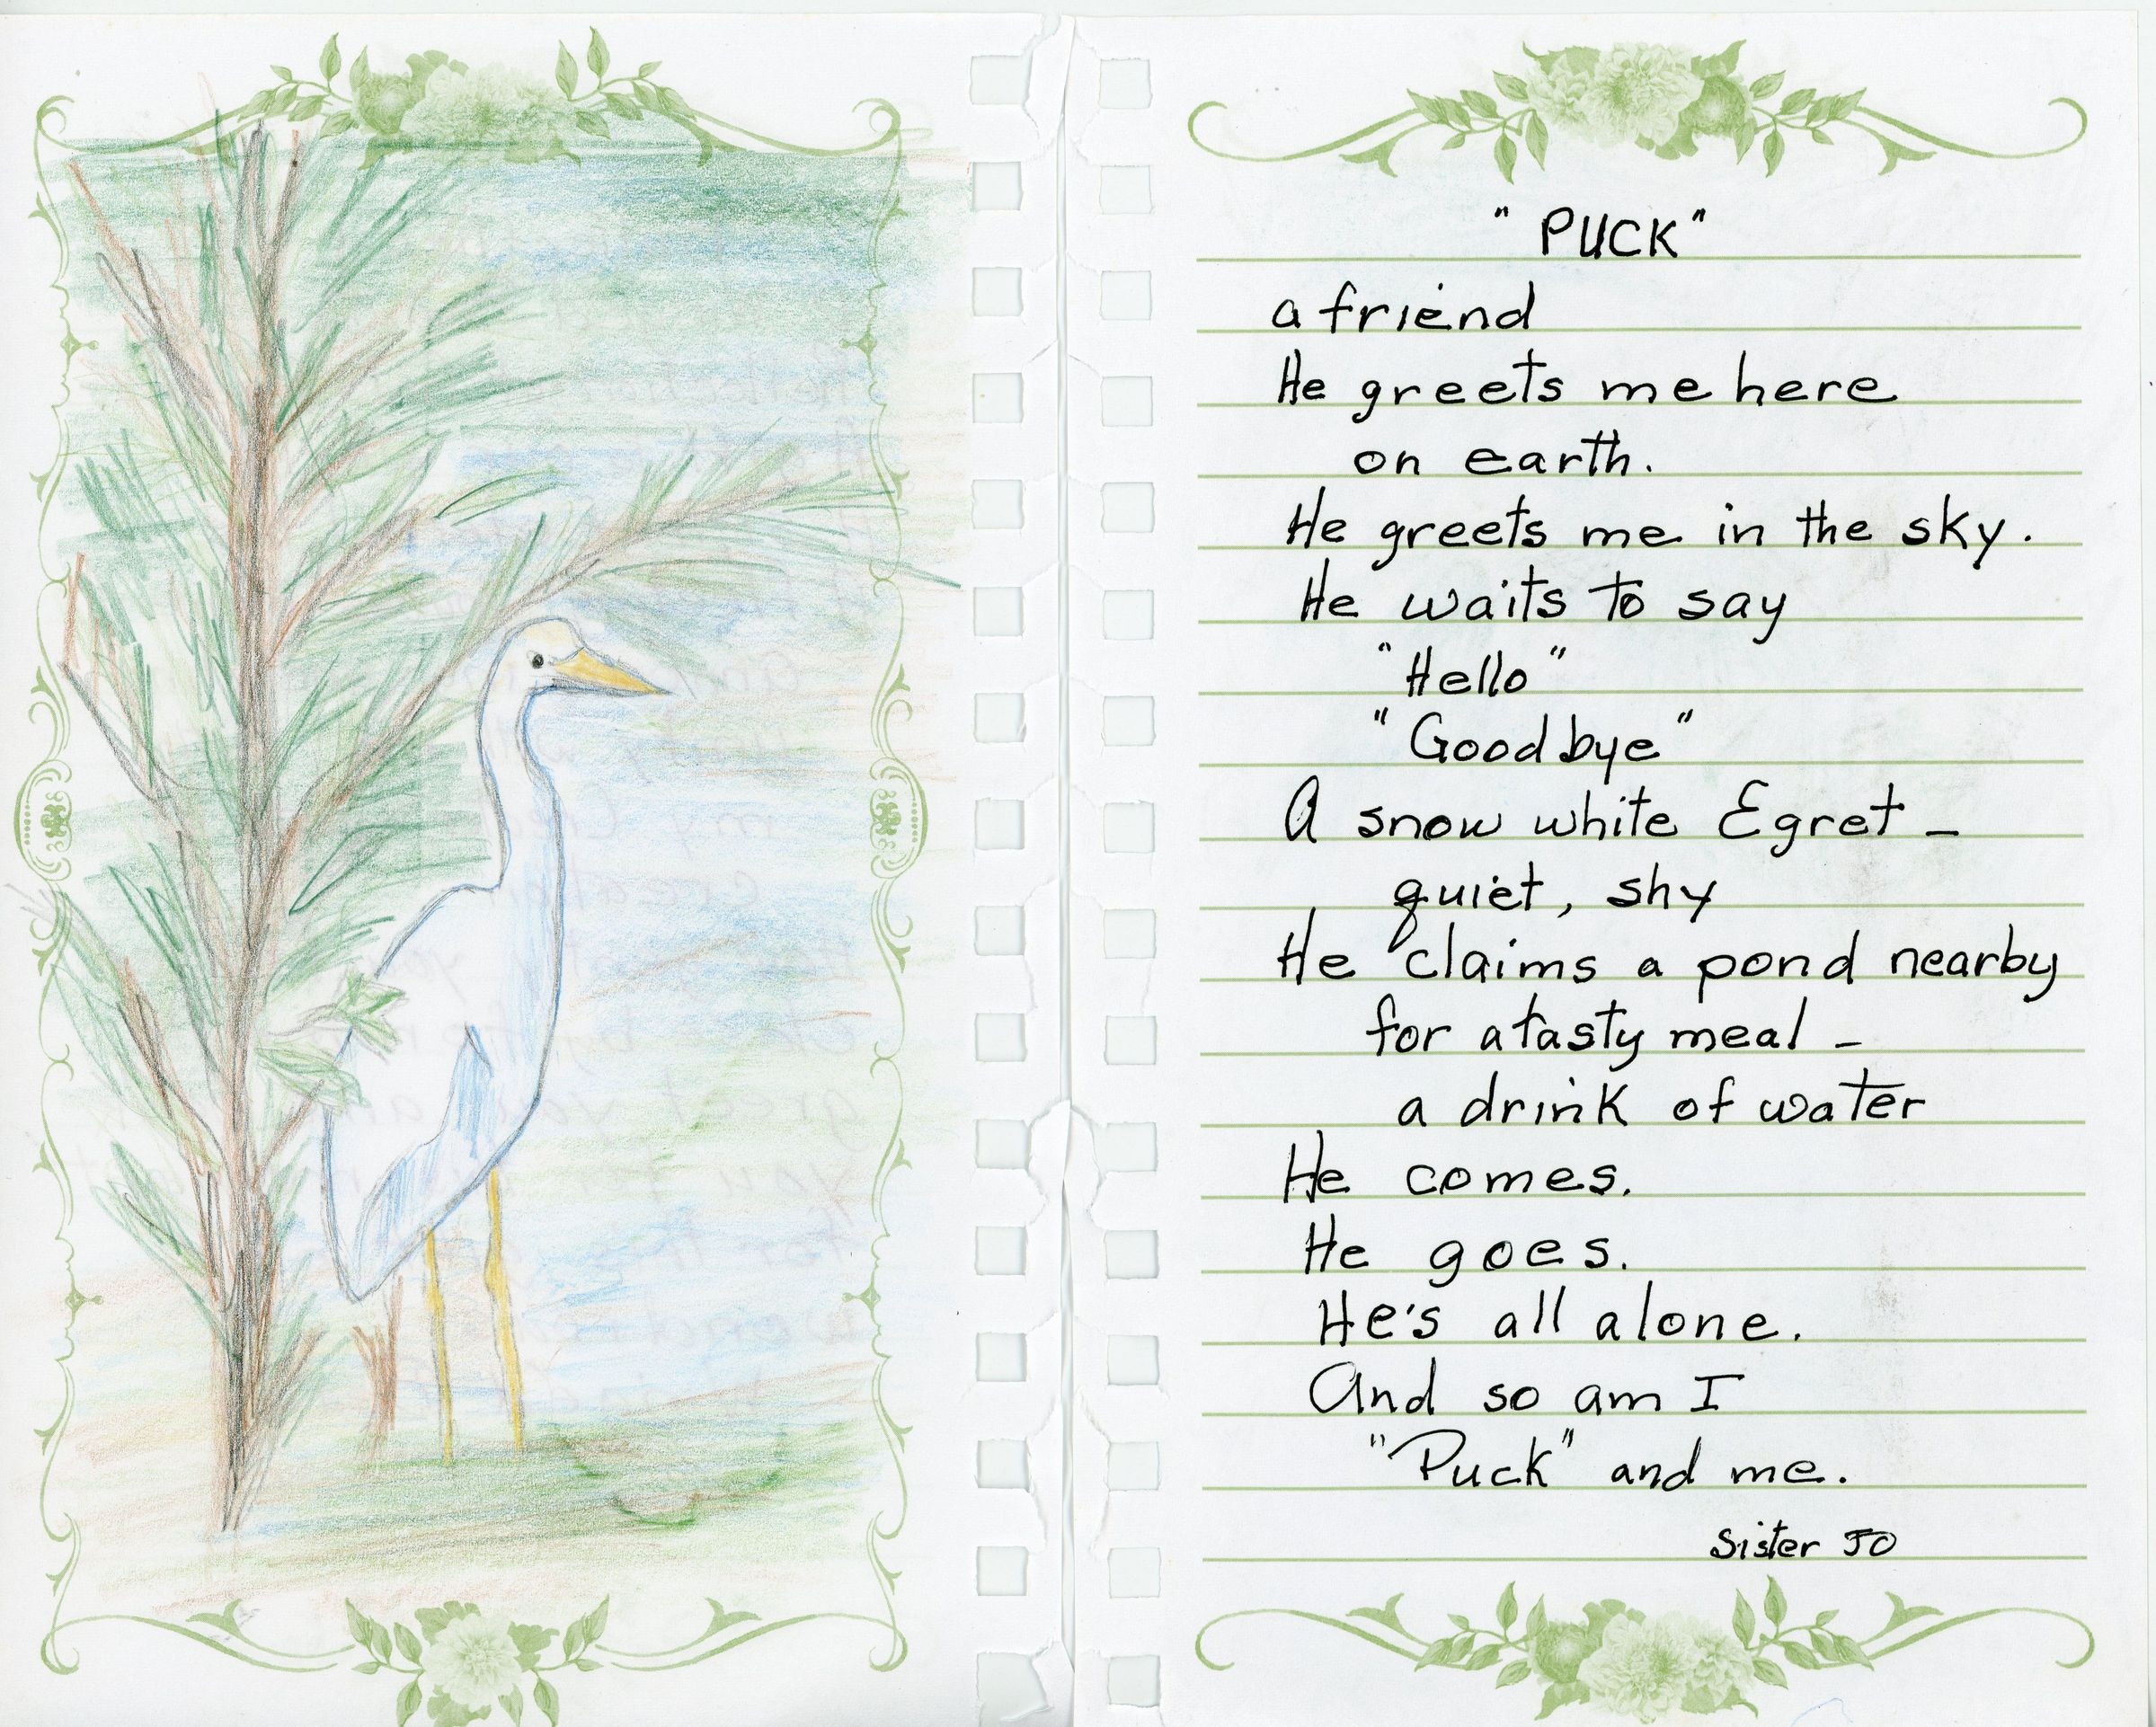 "PUCK"
a friend
He greets me here
on earth.
He greets me in the sky.
He waits to say
"Hello"
"Goodbye"
A snow white Egret –
quiet, shy
He claims a pond nearby
for a tasty meal –
a drink of water
He comes.
He goes.
He's all alone.
And so am I
"Puck" and me.
Sister JO